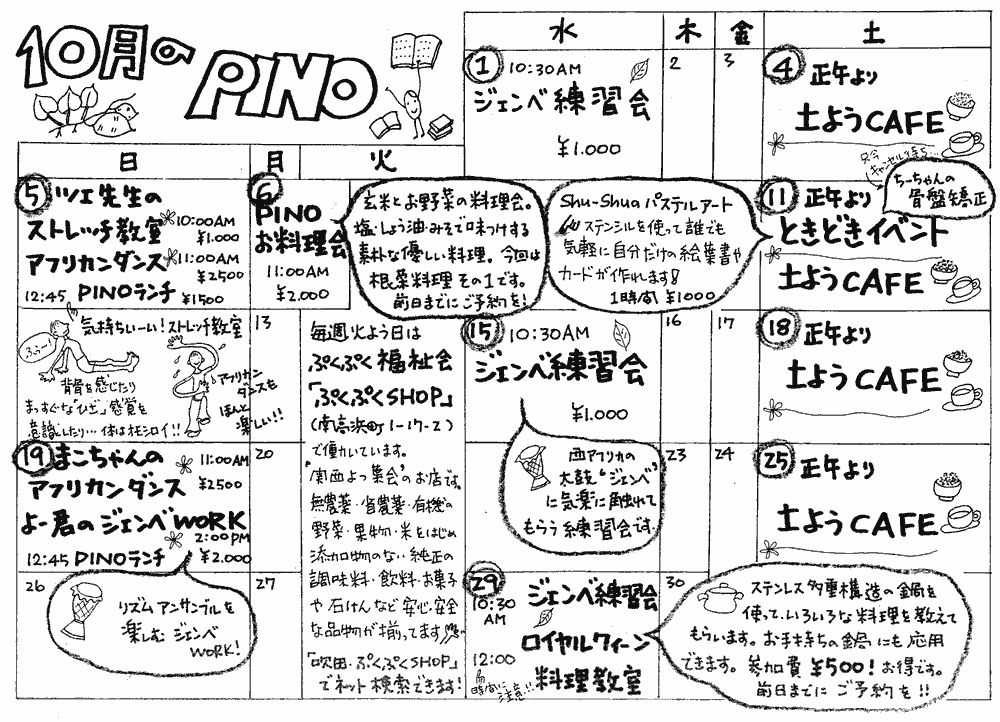 10月の PINO
水
木
金
土
日
月
火
1 10:30AM
ジェンベ練習会
¥1.000
2
3
4 正午より
土ようCAFE
5 ツェ先生の
ストレッチ教室 10:00AM
¥1.000
アフリカンダンス 11:00AM
¥2500
12:45 PINOランチ ¥1500
6
PINO
お料理会
11:00AM
¥2.000
玄米とお野菜の料理会。
塩・しょう油・みそで味つけする
素朴な優しい料理。今回は
根菜料理 その1です。
前日までにご予約を!
Shu-Shuのパステルアート
ステンシルを使って誰でも
気軽に自分だけの絵葉書や
カードが作れます!
1時間 ¥1000
只今
キャンセル待ち…
ちーちゃんの
骨盤矯正
11 正午より
ときどきイベント
土ようCAFE
気持ちいーい! ストレッチ教室
ふぅー!
背骨を感じたり
まっすぐな"ひざ"感覚を
意識したり…体はオモシロイ!!
アフリカン
ダンスも
ほんと
楽しい!!
13
毎週 火よう日は
ぷくぷく福祉会
「ぷくぷくSHOP」
(南高浜町1-17-2)
で働いています。
"関西よつ葉会"のお店です。
無農薬・省農薬・有機の
野菜・果物・米をはじめ
添加物のない純正の
調味料・飲料・お菓子
や石けんなど安心・安全
な品物が揃ってます
「吹田・ぷくぷくSHOP」
でネット検索できます!
15 10:30AM
ジェンベ練習会
¥1.000
16
17
18 正午より
土ようCAFE
19 まこちゃんの
アフリカンダンス 11:00AM
¥2500
よー君のジェンベWORK
2:00PM
12:45 PINOランチ ¥2.000
20
西アフリカの
太鼓"ジェンベ"
に気楽に触れて
もらう練習会です。
23
24
25 正午より
土ようCAFE
26
リズムアンサンブルを
楽しむ ジェンベ
WORK!
27
29 ジェンベ練習会
10:30
AM
ロイヤルクィーン
12:00
料理教室
時間に注意!!
30
ステンレス多重構造の鍋を
使って、いろいろな料理を教えて
もらいます。お手持ちの鍋にも応用
できます。参加費 ¥500! お得です。
前日までに ご予約を!!